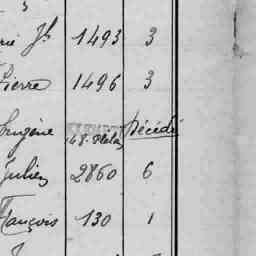 1493 3
Pierre 1496 3
Eugène EXEMPT Décédé
Julien 2860 6
François 130 1